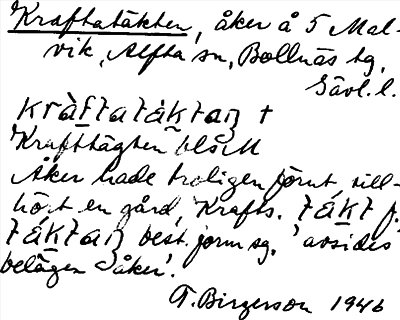 Kraftatäkten, åker å 5 Mal-
vik, Alfta sn, Bollnäs tg,
Gävl. l.
kràftatäktaɳ +
Krafttägten blå M
Åker hade troligen förut till-
hört en gård, Krafts. täkt f.
täktaɳ best. form sg. 'avsides
belägen åker'.
T. Birgerson 1946